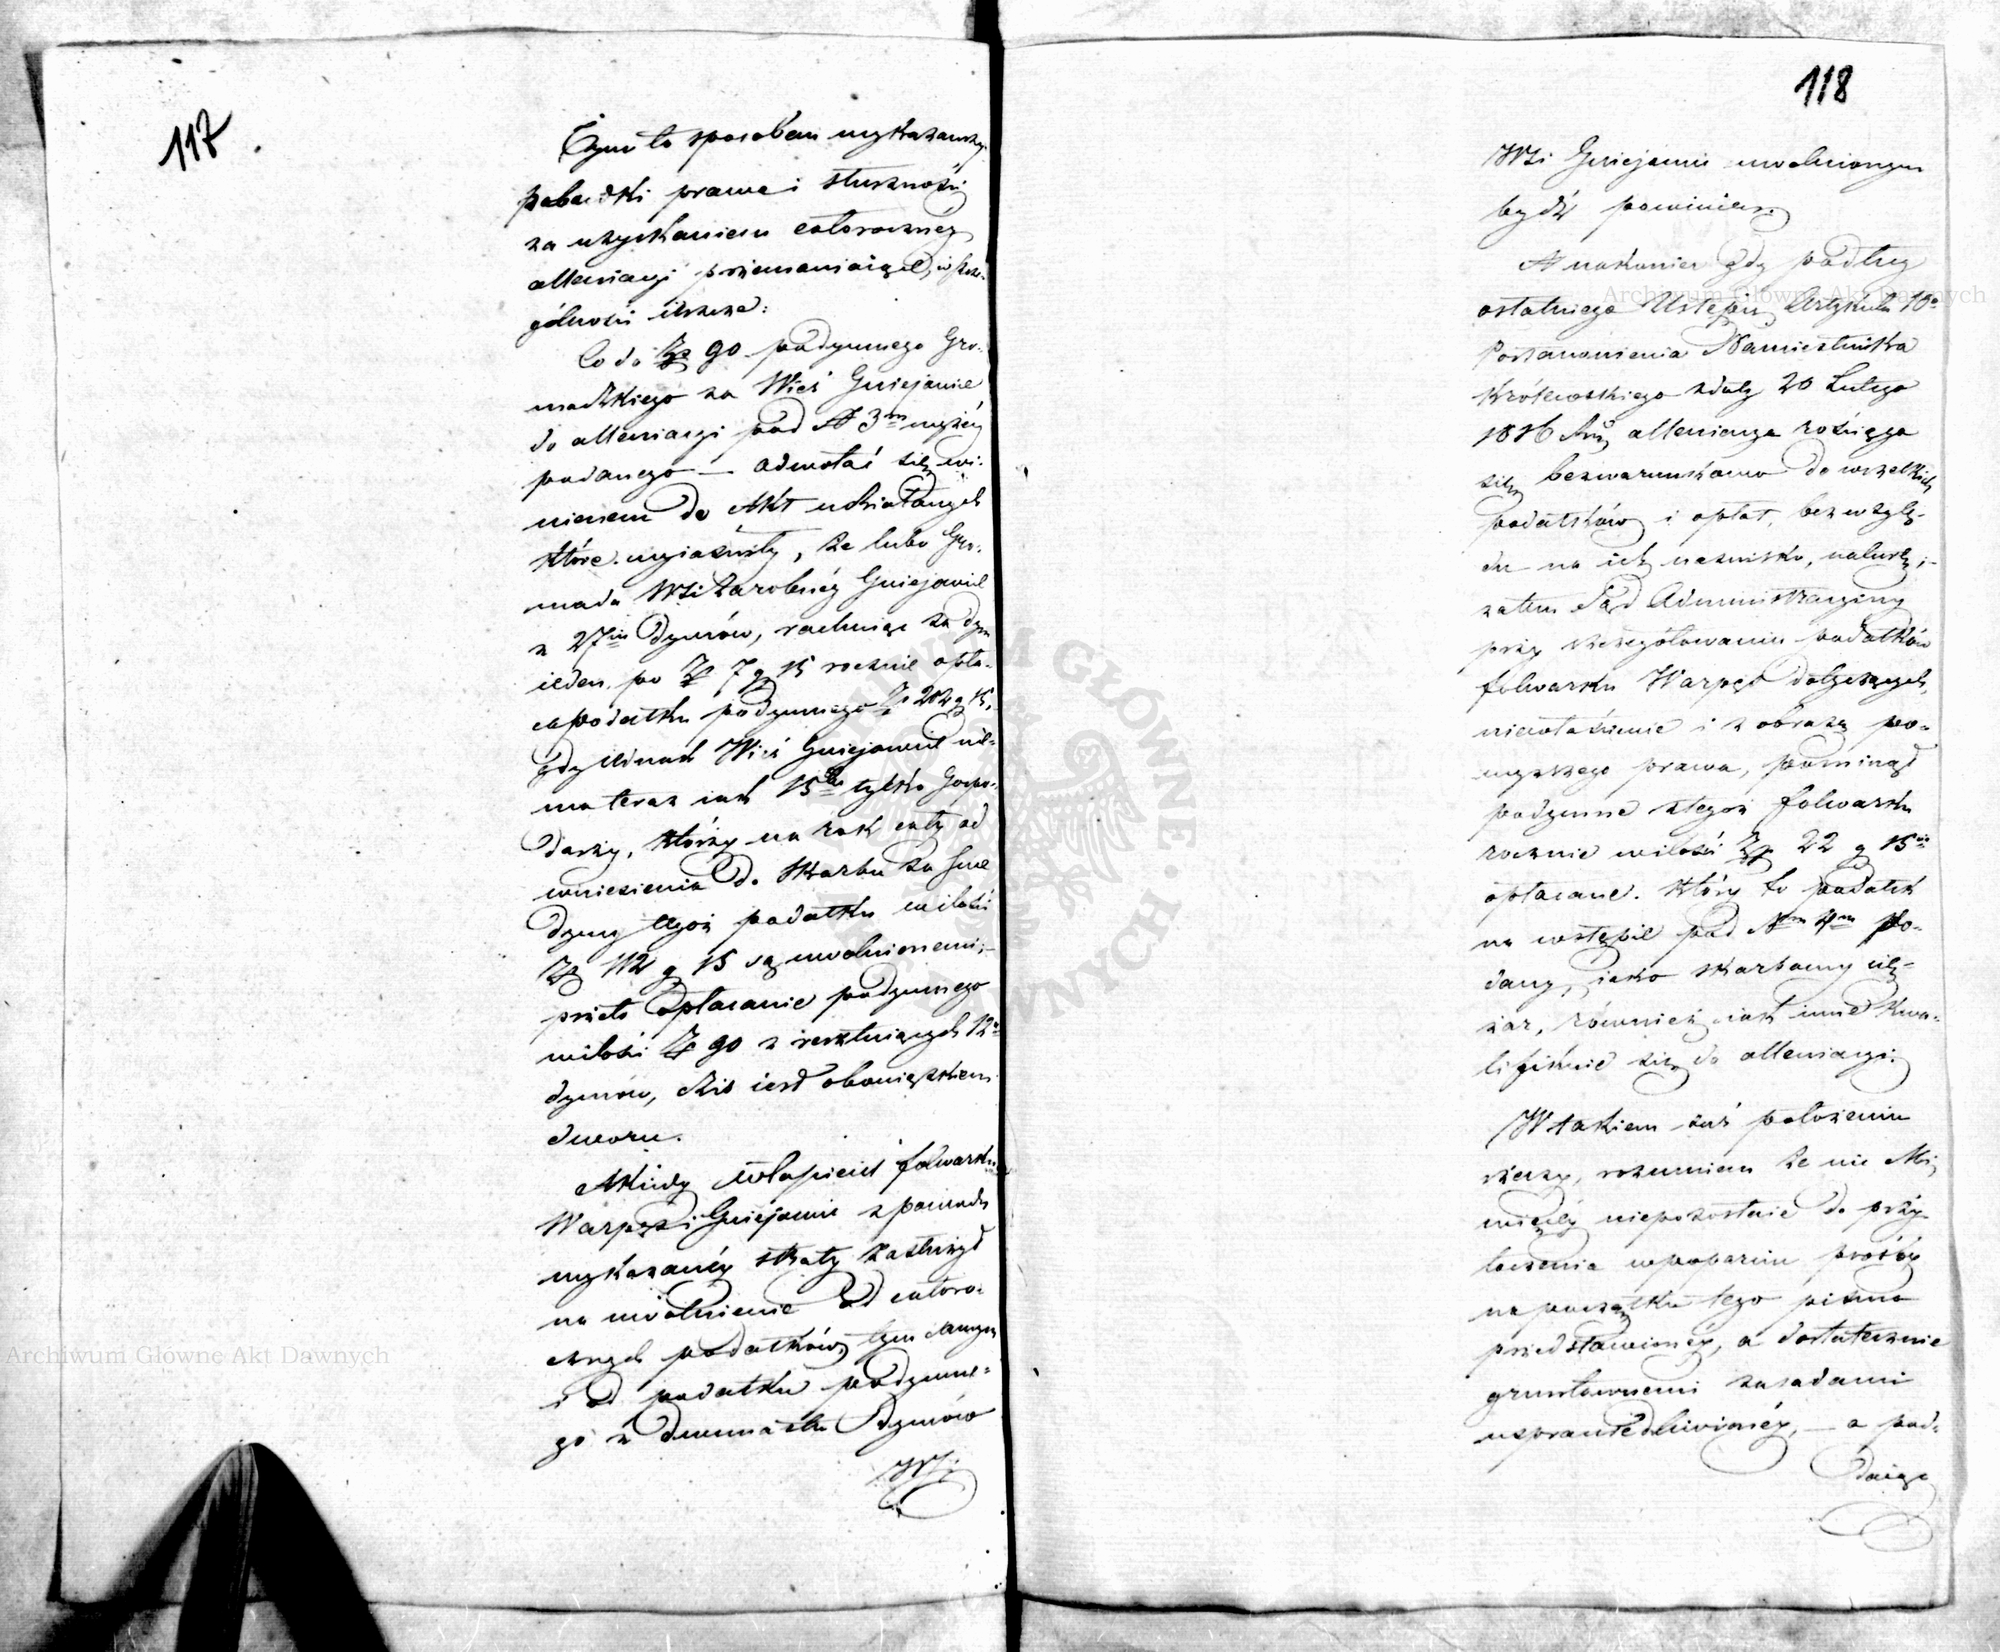 117
Tym to sposobem wykazawszy
pobudki prawa i słuszności
za uzyskaniem całorocznéy
allewiacyi przemawiaiących, w szcze-
gólności ieszcze:
Co do Zp 90 podymnego Gro-
madzkiego za Wieś Gniejewice
do allewiacyi pod N 3m wyżéy
podanego — odwołać się wi-
nienem do Akt udziałanych
które wyiaśniły, że lubo Gro-
mada Wsi Zarobnéy Gniejewice
z 27iu Dymów, rachuiąc za dym
ieden po Zp 7 g 15 rocznie opła-
ca podatku podymnego Zp 202 g 15,
gdy iednak Wieś Gniejewice nie-
ma teraz iak 15tu tylko Gospo-
darzy, którzy na rok cały od
wniesienia do Skarbu za swe
dymy tegoż podatku w ilości
Zp 112 g 15 są uwolnionemi;
przeto opłacanie podymnego
w ilości Zp 90 z resztuiących 12u
dymów, dziś iest obowiązkiem
dworu.
A kiedy właściciel folwarku
Warpęsz i Gniejewic z powodu
wykazanéy straty zasłużył
na uwolnienie od całoro-
cznych podatków, tym samym
i od podatku podymne-
go z dwunastu Dymów
Wsi
118
Wsi Gniejewic uwolnionym
bydź powinien.
A nakoniec gdy podług
ostatniego Ustępu Artykułu 10o
Postanowienia Namiestnika
Królewskiego z daty 20 Lutego
1816 Ru, allewiacya rościąga
się bezwarunkowo do wszelkich
podatków i opłat, bez wzglę-
du na ich nazwisko, naturę;
zatem Sąd Administracyiny
przy szczegółowaniu podatków
folwarku Warpęsz dotyczących,
niewłaściwie i z obrazą po-
wyższego prawa, pominął
podymne z tegoż folwarku
rocznie w ilości Zp 22 g 15
opłacane. Który to podatek
na wstępie pod Nrm 4m po-
dany, iako skarbowy cię-
żar, równiez iak inne kwa-
lifikuie się do allewiacyi.
W takiem zaś położeniu
rzeczy, rozumiem że nic Mi
więcéy niepozostaie do przy-
toczenia w poparciu prośby
na początku tego pisma
przedstawionéy, a dostatecznie
gruntownemi zasadami
usprawiedliwionéy, — a pod-
daiąc
Archiwum Główne Akt Dawnych
Archiwum Główne Akt Dawnych